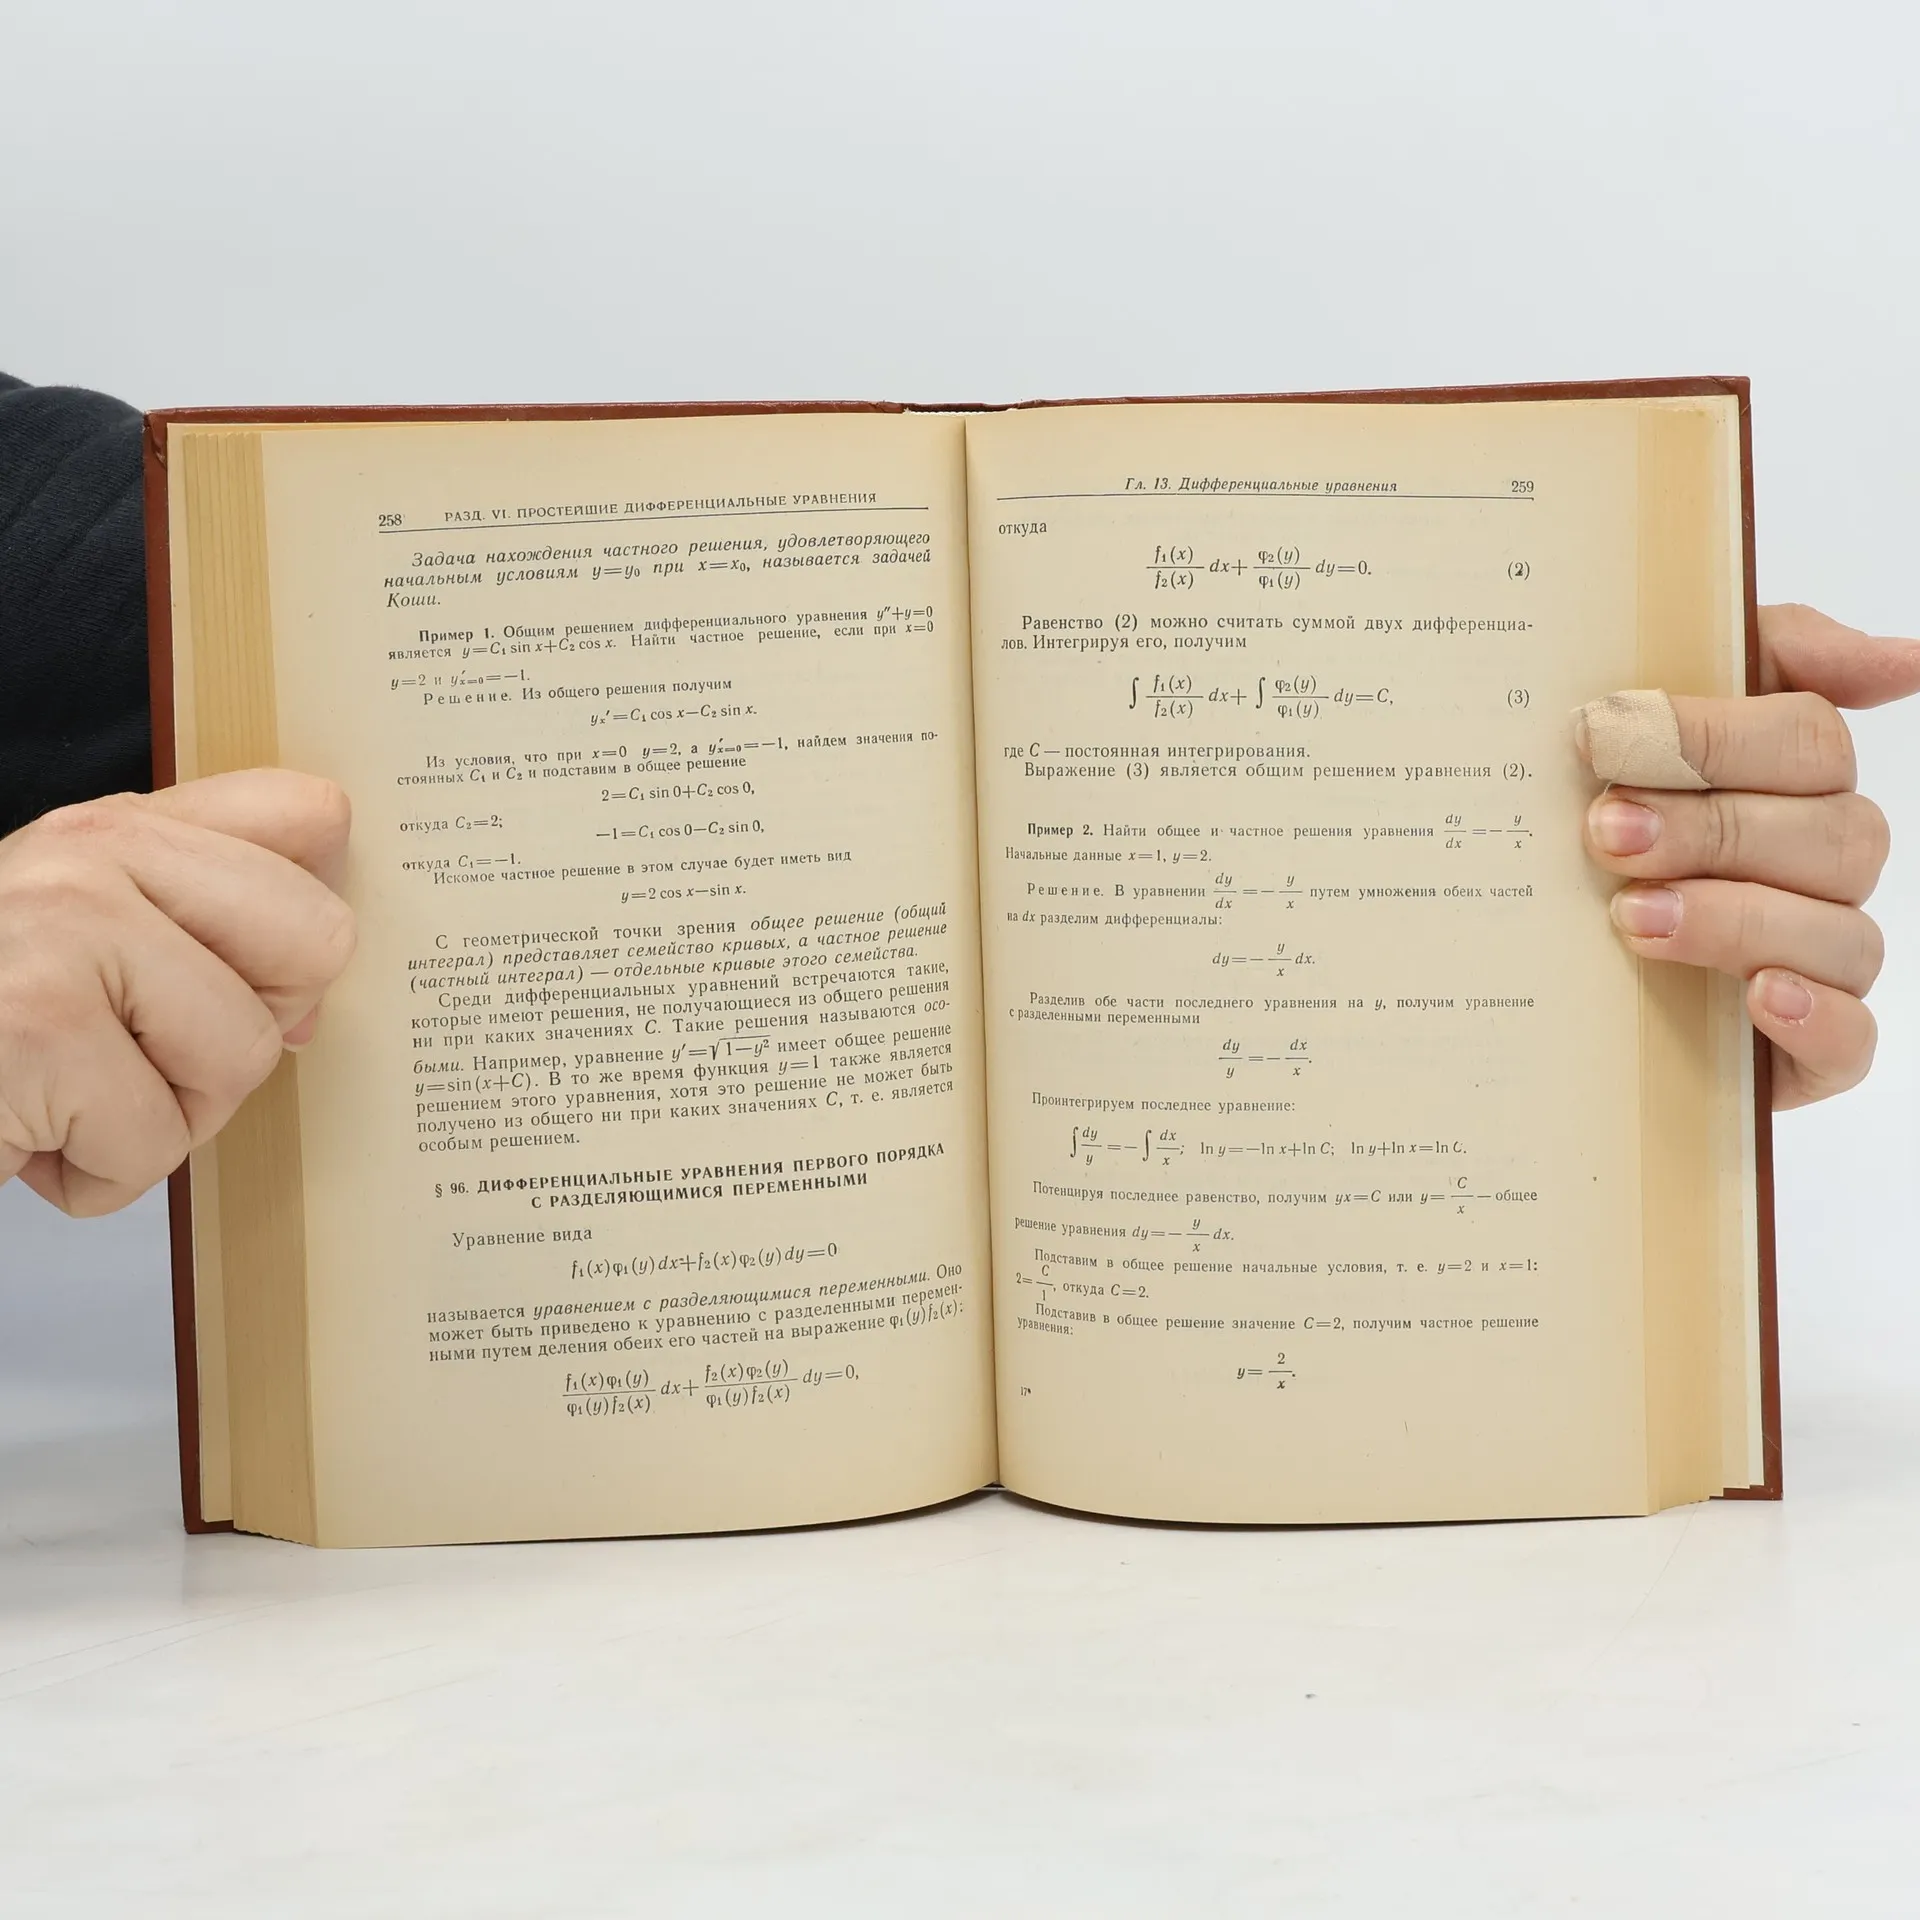 258 РАЗД. VI. ПРОСТЕЙШИЕ ДИФФЕРЕНЦИАЛЬНЫЕ УРАВНЕНИЯ
Задача нахождения частного решения, удовлетворяющего
начальным условиям y=y₀ при x=x₀, называется задачей
Коши.
Пример 1. Общим решением дифференциального уравнения y″+y=0
является y=C₁ sin x+C₂ cos x. Найти частное решение, если при x=0
y=2 и y′ₓ₌₀=—1.
Решение. Из общего решения получим
yₓ′=C₁ cos x—C₂ sin x.
Из условия, что при x=0 y=2, а y′ₓ₌₀=—1, найдем значения по-
стоянных C₁ и C₂ и подставим в общее решение
2=C₁ sin 0+C₂ cos 0,
откуда C₂=2;
—1=C₁ cos 0—C₂ sin 0,
откуда C₁=—1.
Искомое частное решение в этом случае будет иметь вид
y=2 cos x—sin x.
С геометрической точки зрения общее решение (общий
интеграл) представляет семейство кривых, а частное решение
(частный интеграл) — отдельные кривые этого семейства.
Среди дифференциальных уравнений встречаются такие,
которые имеют решения, не получающиеся из общего решения
ни при каких значениях C. Такие решения называются осо-
быми. Например, уравнение y′=√1—y² имеет общее решение
y=sin(x+C). В то же время функция y=1 также является
решением этого уравнения, хотя это решение не может быть
получено из общего ни при каких значениях C, т. е. является
особым решением.
§ 96. ДИФФЕРЕНЦИАЛЬНЫЕ УРАВНЕНИЯ ПЕРВОГО ПОРЯДКА
С РАЗДЕЛЯЮЩИМИСЯ ПЕРЕМЕННЫМИ
Уравнение вида
f₁(x)φ₁(y)dx+f₂(x)φ₂(y)dy=0
называется уравнением с разделяющимися переменными. Оно
может быть приведено к уравнению с разделенными перемен-
ными путем деления обеих его частей на выражение φ₁(y)f₂(x):
f₁(x)φ₁(y)/φ₁(y)f₂(x) dx+ f₂(x)φ₂(y)/φ₁(y)f₂(x) dy=0,
Гл. 13. Дифференциальные уравнения 259
откуда
f₁(x)/f₂(x) dx+ φ₂(y)/φ₁(y) dy=0. (2)
Равенство (2) можно считать суммой двух дифференциа-
лов. Интегрируя его, получим
∫ f₁(x)/f₂(x) dx+ ∫ φ₂(y)/φ₁(y) dy=C, (3)
где C — постоянная интегрирования.
Выражение (3) является общим решением уравнения (2).
Пример 2. Найти общее и частное решения уравнения dy/dx =— y/x.
Начальные данные x=1, y=2.
Решение. В уравнении dy/dx =— y/x путем умножения обеих частей
на dx разделим дифференциалы:
dy=— y/x dx.
Разделив обе части последнего уравнения на y, получим уравнение
с разделенными переменными
dy/y =— dx/x.
Проинтегрируем последнее уравнение:
∫ dy/y =— ∫ dx/x; ln y=—ln x+ln C; ln y+ln x=ln C.
Потенцируя последнее равенство, получим yx=C или y= C/x — общее
решение уравнения dy=— y/x dx.
Подставим в общее решение начальные условия, т. е. y=2 и x=1:
2= C/1, откуда C=2.
Подставив в общее решение значение C=2, получим частное решение
уравнения:
y= 2/x.
17*